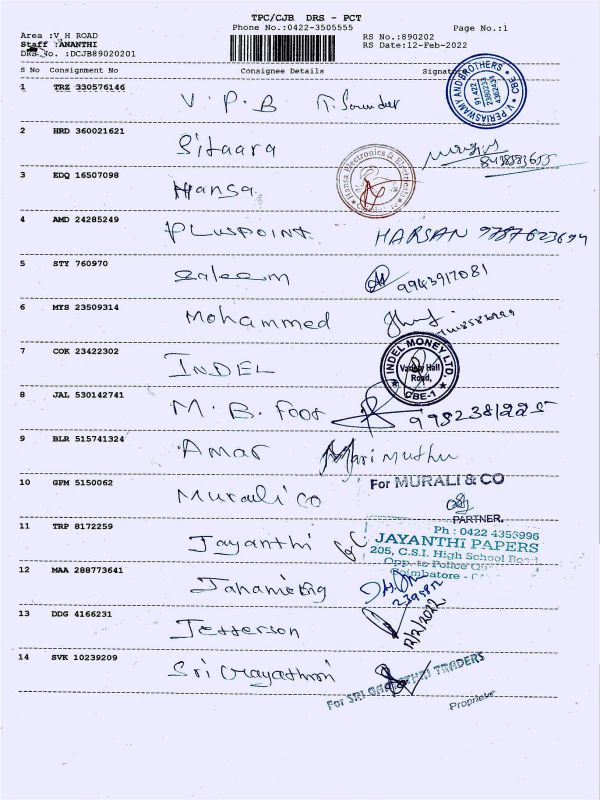 TPC/CJB DRS - PCT
Phone No.:0422-3505555 Page No.:1
Area :V H ROAD RS No.:890202
Staff :ANANTHI RS Date:12-Feb-2022
DRS No. :DCJB89020201
S No Consignment No Consignee Details Signature
1 TRZ 330576146 V.P.B
V. PERIASWAMY AND BROTHERS CBE
2 HRD 360021621 Sitaara
3 EDQ 16507098 Hansa
Hansa Electronics &
4 AMD 24285249 PLUSPOINT HARSAN 9787623694
5 STY 760970 Saleem 9943917081
6 MYS 23509314 Mohammed
7 COK 23422302 INDEL
INDEL MONEY LTD. Hall Road, CBE-1
8 JAL 530142741 M.B. Foot
9 BLR 515741324 Amar Marimuthu
10 GPM 5150062 Murali co
For MURALI & CO
PARTNER.
11 TRP 8172259 Jayanthi
Ph : 0422 4356996
JAYANTHI PAPERS
205, C.S.I. High School Road
Opp. to Police
Coimbatore -
12 MAA 288773641
13 DDG 4166231 Jefferson 12/2/2022
14 SVK 10239209 Sri
For SRI TRADERS
Proprietor